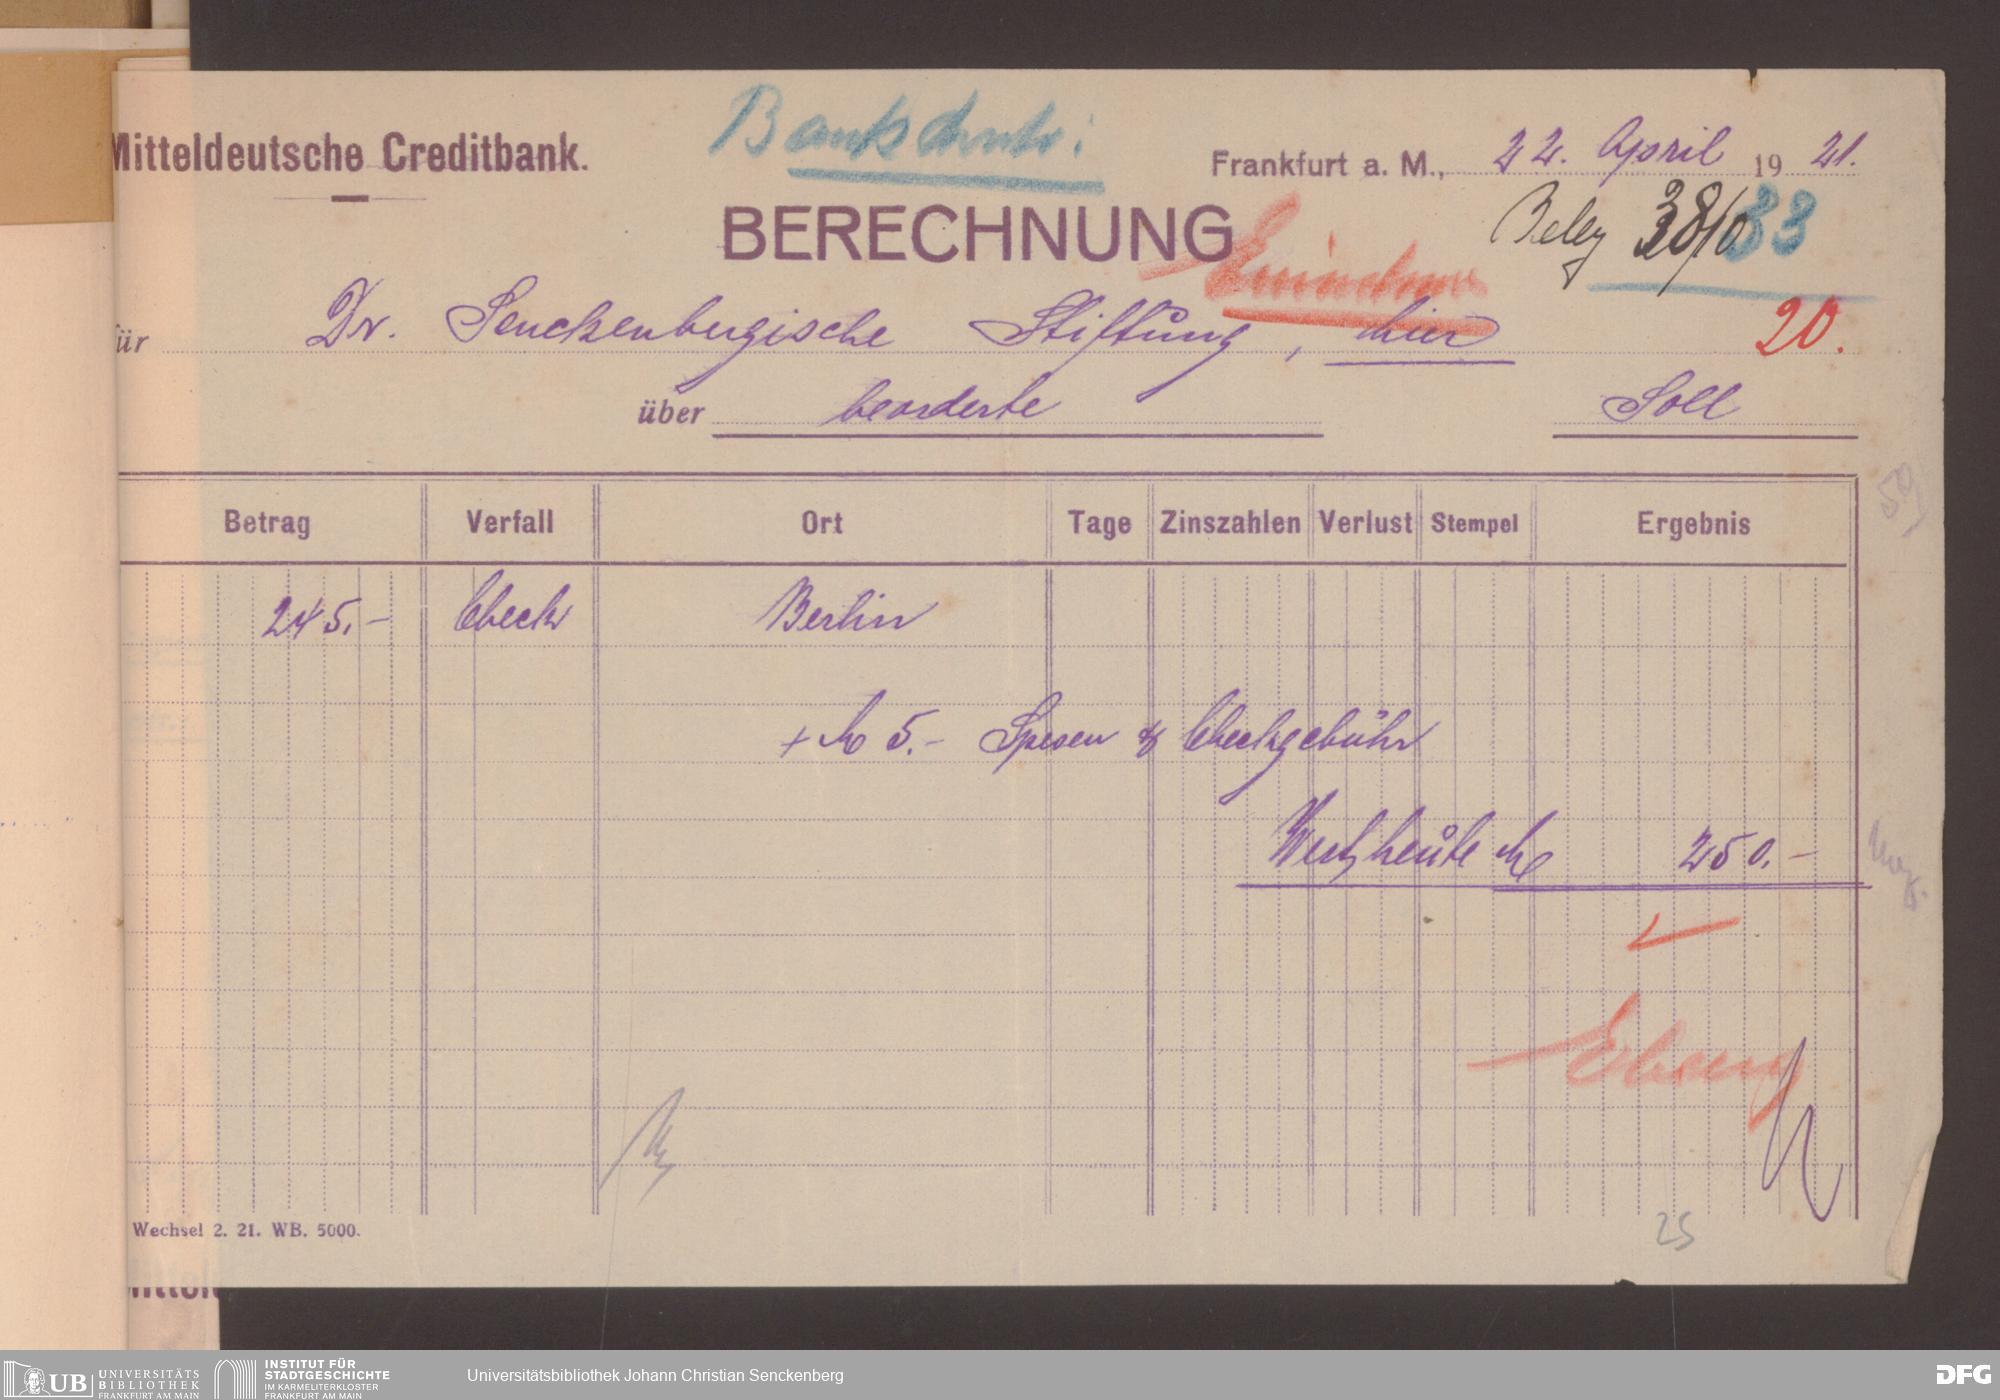 Mitteldeutsche Creditbank.
Frankfurt a. M., 22. April 1921.
BERECHNUNG
Beleg 38/0 33
für Dr. Senckenbergische Stiftung, hier
20.
über beorderte Soll
Betrag Verfall Ort Tage Zinszahlen Verlust Stempel Ergebnis
245.- Check Berlin
+ M 5.- Spesen & Checkgebühr
Wert heute M 250.-
25
Wechsel 2. 21. WB. 5000.
UB UNIVERSITÄTS
BIBLIOTHEK
FRANKFURT AM MAIN
INSTITUT FÜR
STADTGESCHICHTE
IM KARMELITERKLOSTER
FRANKFURT AM MAIN
Universitätsbibliothek Johann Christian Senckenberg
DFG